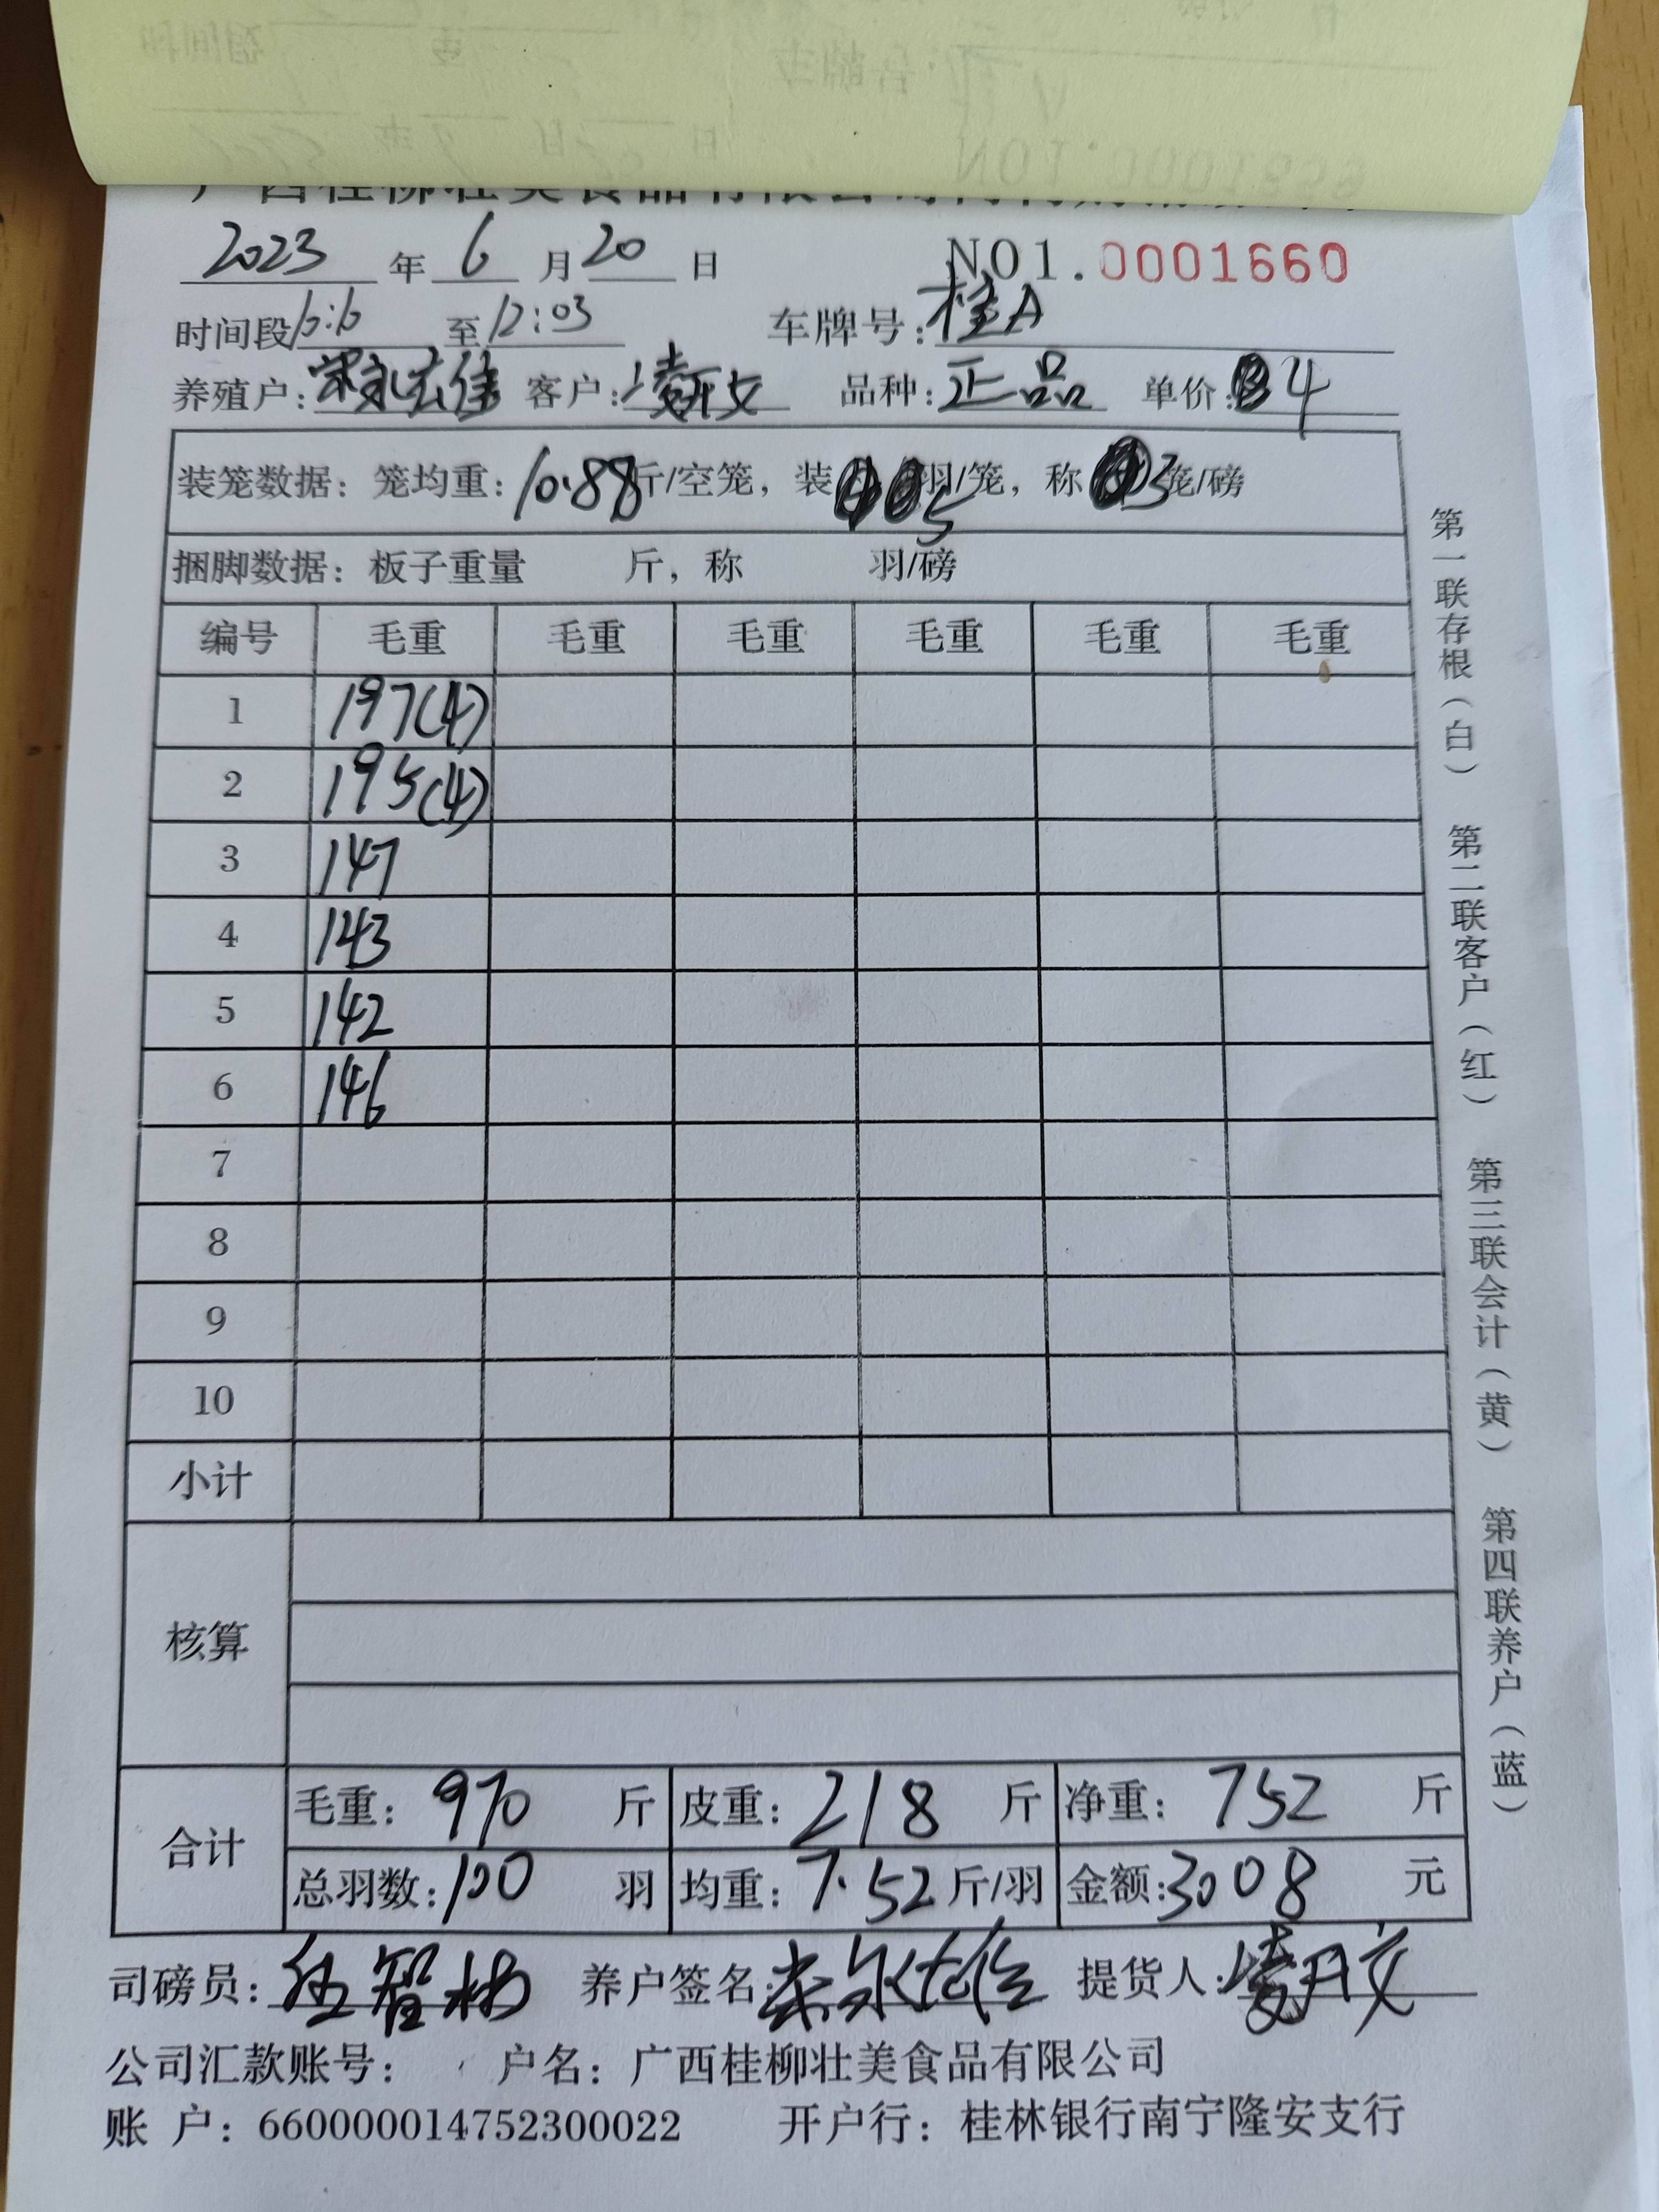 2023 年 6 月 20 日 NO1.0001660
时间段 至 12:03 车牌号: 桂A
养殖户: 客户: 品种: 正品 单价: 4
装笼数据: 笼均重: 10.88 斤/空笼, 装 5 羽/笼, 称 3 笼/磅
捆脚数据: 板子重量 斤, 称 羽/磅
编号 毛重 毛重 毛重 毛重 毛重 毛重
1 197(4)
2 195(4)
3 147
4 143
5 142
6 146
7
8
9
10
小计
核算
合计 毛重: 970 斤 皮重: 218 斤 净重: 752 斤
总羽数: 100 羽 均重: 7.52 斤/羽 金额: 3008 元
司磅员: 养户签名: 提货人:
公司汇款账号: 户名: 广西桂柳壮美食品有限公司
账 户: 660000014752300022 开户行: 桂林银行南宁隆安支行
第一联存根(白) 第二联客户(红) 第三联会计(黄) 第四联养户(蓝)